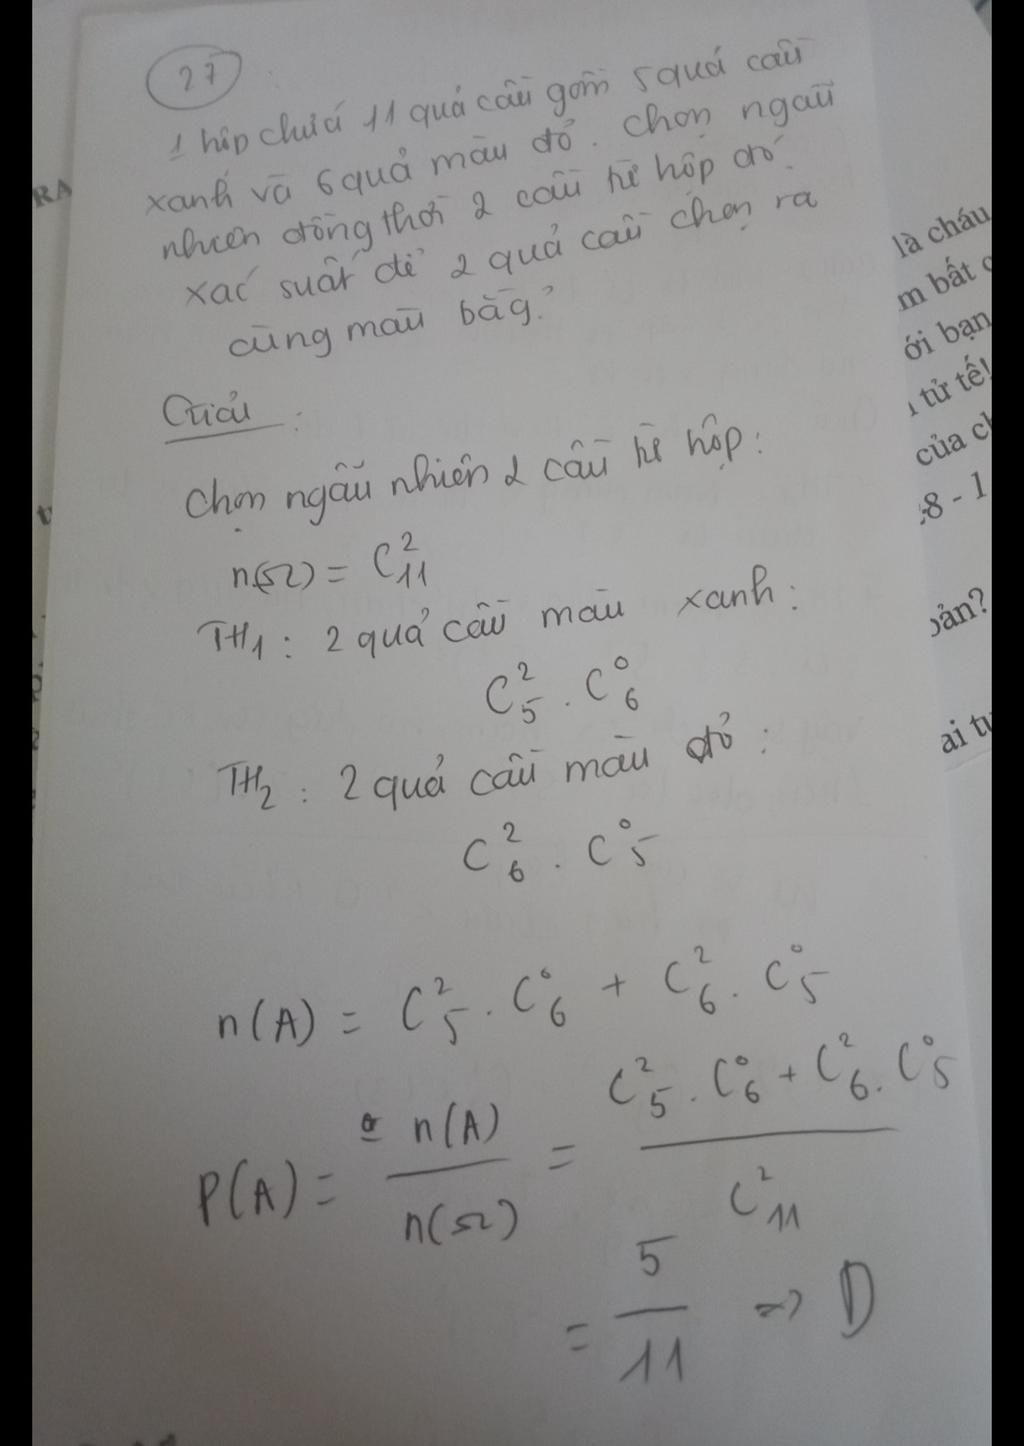 27
1 hộp chứa 11 quả cầu gồm 5 quả cầu
xanh và 6 quả màu đỏ. Chọn ngẫu
nhiên đồng thời 2 cầu từ hộp đó.
xác suất để 2 quả cầu chọn ra
cùng màu bằg?
Giải :
Chọn ngẫu nhiên 2 cầu từ hộp :
n(Ω) = C²₁₁
TH₁ : 2 quả cầu màu xanh :
C²₅ . C⁰₆
TH₂ : 2 quả cầu màu đỏ :
C²₆ . C⁰₅
n(A) = C²₅ . C⁰₆ + C²₆ . C⁰₅
P(A) = n(A) / n(Ω) = (C²₅ . C⁰₆ + C²₆ . C⁰₅) / C²₁₁
= 5/11 => D
RA
là cháu
m bất
ới bạn
tử tế!
của
8 - 1
bản?
ai